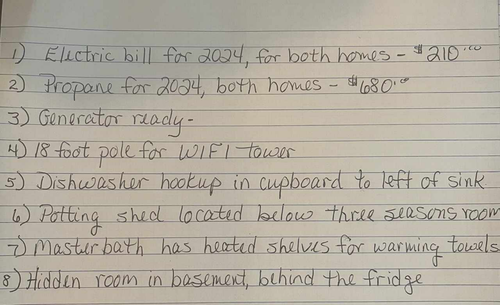 1) Electric bill for 2024, for both homes - $210.00
2) Propane for 2024, both homes - $680.00
3) Generator ready -
4) 18 foot pole for WIFI tower
5) Dishwasher hookup in cupboard to left of sink
6) Potting shed located below three seasons room
7) Master bath has heated shelves for warming towels
8) Hidden room in basement, behind the fridge